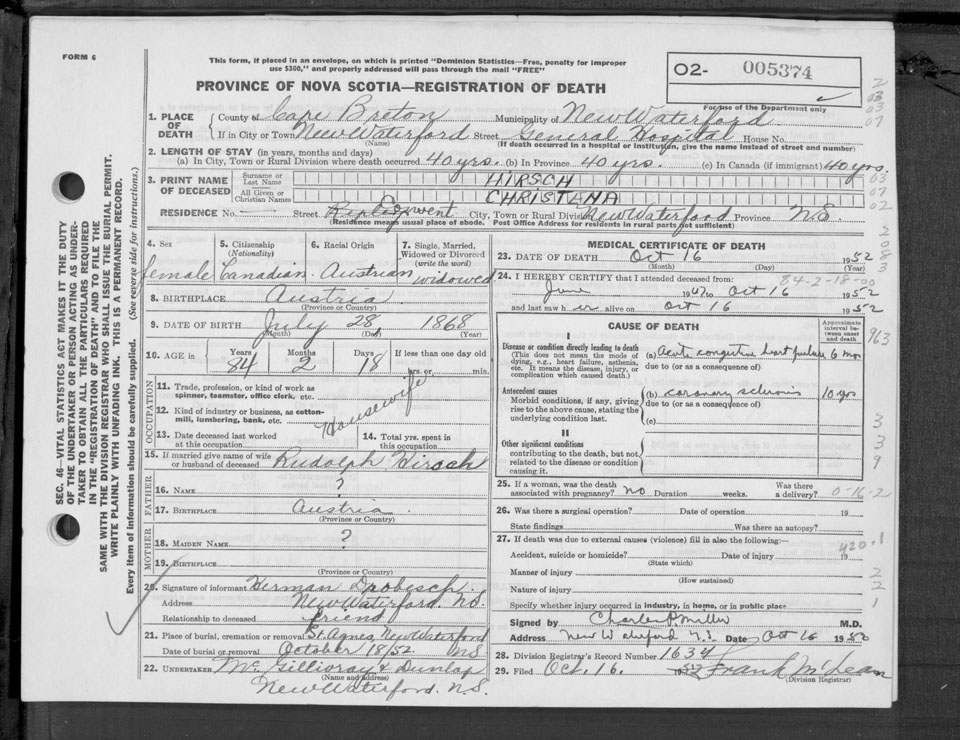 FORM 6
This form, if placed in an envelope, on which is printed "Dominion Statistics—Free, penalty for improper
use $300," and properly addressed will pass through the mail "FREE"
O2- 005374
For use of the Department only
PROVINCE OF NOVA SCOTIA—REGISTRATION OF DEATH
1. PLACE OF DEATH
County of Cape Breton Municipality of New Waterford
If in City or Town New Waterford Street General Hospital House No.
(Name) (If death occurred in a hospital or Institution, give the name instead of street and number)
2. LENGTH OF STAY (in years, months and days)
(a) In City, Town or Rural Division where death occurred 40 yrs. (b) In Province 40 yrs. (c) In Canada (if immigrant) 40 yrs.
3. PRINT NAME OF DECEASED
Surname or Last Name HIRSCH
All Given or Christian Names CHRISTANA
RESIDENCE No. — Street City, Town or Rural Division New Waterford Province N.S.
(Residence means usual place of abode. Post Office Address for residents in rural parts not sufficient)
4. Sex female
5. Citizenship (Nationality) Canadian
6. Racial Origin Austrian
7. Single, Married, Widowed or Divorced (write the word) widowed
8. BIRTHPLACE Austria
(Province or Country)
9. DATE OF BIRTH July 28 1868
(Month) (Day) (Year)
10. AGE in Years 84 Months 2 Days 18 If less than one day
hrs. or min.
OCCUPATION
11. Trade, profession, or kind of work as
spinner, teamster, office clerk, etc.
Housewife
12. Kind of industry or business, as cotton-
mill, lumbering, bank, etc.
13. Date deceased last worked
at this occupation
14. Total yrs. spent in
this occupation
15. If married give name of wife
or husband of deceased Rudolph Hirsch
FATHER
16. NAME ?
17. BIRTHPLACE Austria
(Province or Country)
MOTHER
18. MAIDEN NAME ?
19. BIRTHPLACE
(Province or Country)
20. Signature of informant Herman Drobesch
Address New Waterford. N.S.
Relationship to deceased friend
21. Place of burial, cremation or removal St. Agnes, New Waterford
Date of burial or removal October 18/52 NS
22. UNDERTAKER McGillivray & Dunlap
(Name and Address)
New Waterford. N.S.
MEDICAL CERTIFICATE OF DEATH
23. DATE OF DEATH Oct 16 1952
(Month) (Day) (Year)
24. I HEREBY CERTIFY that I attended deceased from: 84-2-18-00
June 19 to Oct 16 1952
and last saw h er alive on Oct 16 1952
CAUSE OF DEATH
Approximate interval between onset and death
I
Disease or condition directly leading to death
(This does not mean the mode of
dying, e.g., heart failure, asthenia,
etc. It means the disease, injury, or
complication which caused death.)
(a) Acute congestive heart failure 6 mos
due to (or as a consequence of)
Antecedent causes
Morbid conditions, if any, giving
rise to the above cause, stating the
underlying condition last.
(b) coronary sclerosis 10 yrs
due to (or as a consequence of)
(c)
II
Other significant conditions
contributing to the death, but not
related to the disease or condition
causing it.
25. If a woman, was the death
associated with pregnancy? no Duration weeks. Was there
a delivery? 0-16-2
26. Was there a surgical operation? Date of operation 19
State findings Was there an autopsy?
27. If death was due to external causes (violence) fill in also the following:—
420.1
Accident, suicide or homicide? Date of injury 19
(State which)
Manner of injury
(How sustained)
Nature of injury
Specify whether injury occurred in industry, in home, or in public place
Signed by Charles P. Miller M.D.
Address New Waterford N.S. Date Oct 16 1952
28. Division Registrar's Record Number 1634
29. Filed Oct. 16. 1952 Frank McLean
(Division Registrar)
SEC. 46—VITAL STATISTICS ACT MAKES IT THE DUTY
OF THE UNDERTAKER OR PERSON ACTING AS UNDER-
TAKER TO OBTAIN ALL THE PARTICULARS REQUIRED
IN THE "REGISTRATION OF DEATH" AND TO FILE THE
SAME WITH THE DIVISION REGISTRAR WHO SHALL ISSUE THE BURIAL PERMIT.
WRITE PLAINLY WITH UNFADING INK. THIS IS A PERMANENT RECORD.
Every item of information should be carefully supplied. (See reverse side for instructions.)